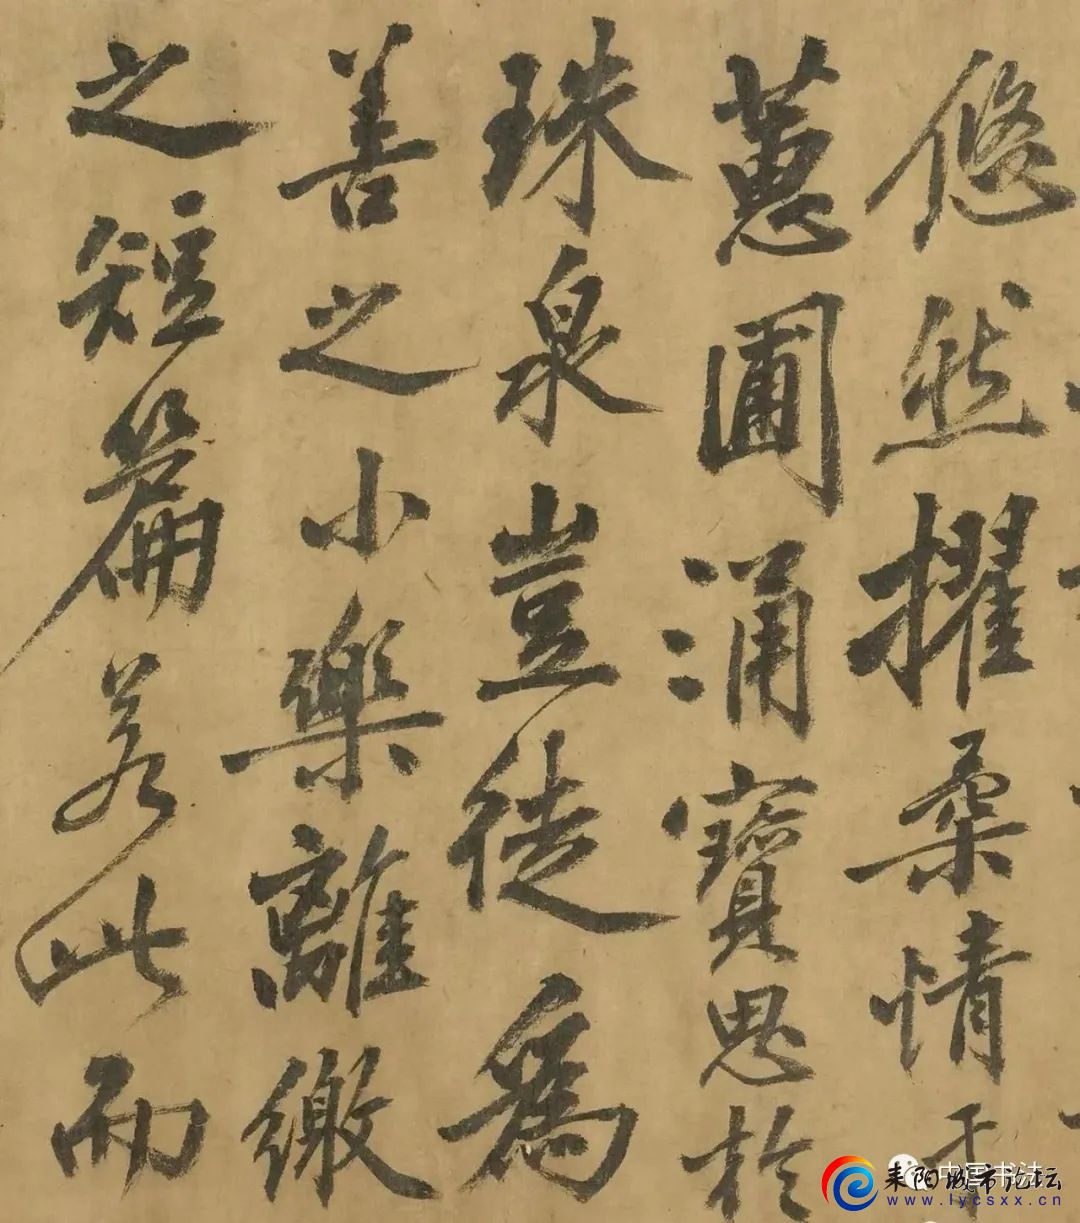 悠然擢柔情于
蕙圃涌寶思於
珠泉豈徒為
善之小樂離繳
之短篇若此而
中国书法
耒阳城市论坛
www.lycsxx.cn